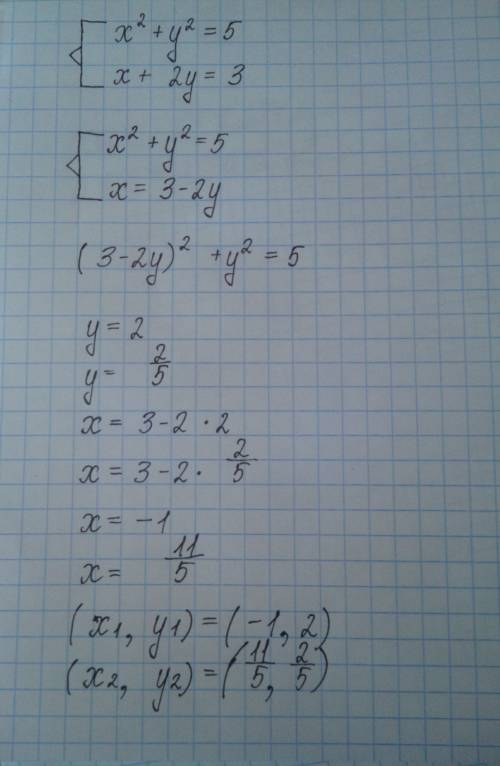 x² + y² = 5
x + 2y = 3
x² + y² = 5
x = 3 - 2y
(3 - 2y)² + y² = 5
y = 2
y = 2/5
x = 3 - 2 · 2
x = 3 - 2 · 2/5
x = -1
x = 11/5
(x₁, y₁) = (-1, 2)
(x₂, y₂) = (11/5, 2/5)